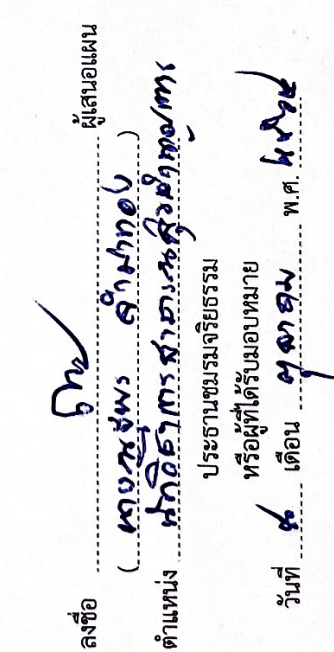 ลงชื่อ ผู้เสนอแผน
( นายธนพร คำมาทอง )
ตำแหน่ง นักวิชาการสาธารณสุขชำนาญการ
ประธานชมรมจริยธรรม
หรือผู้ที่ได้รับมอบหมาย
วันที่ เดือน ตุลาคม พ.ศ.